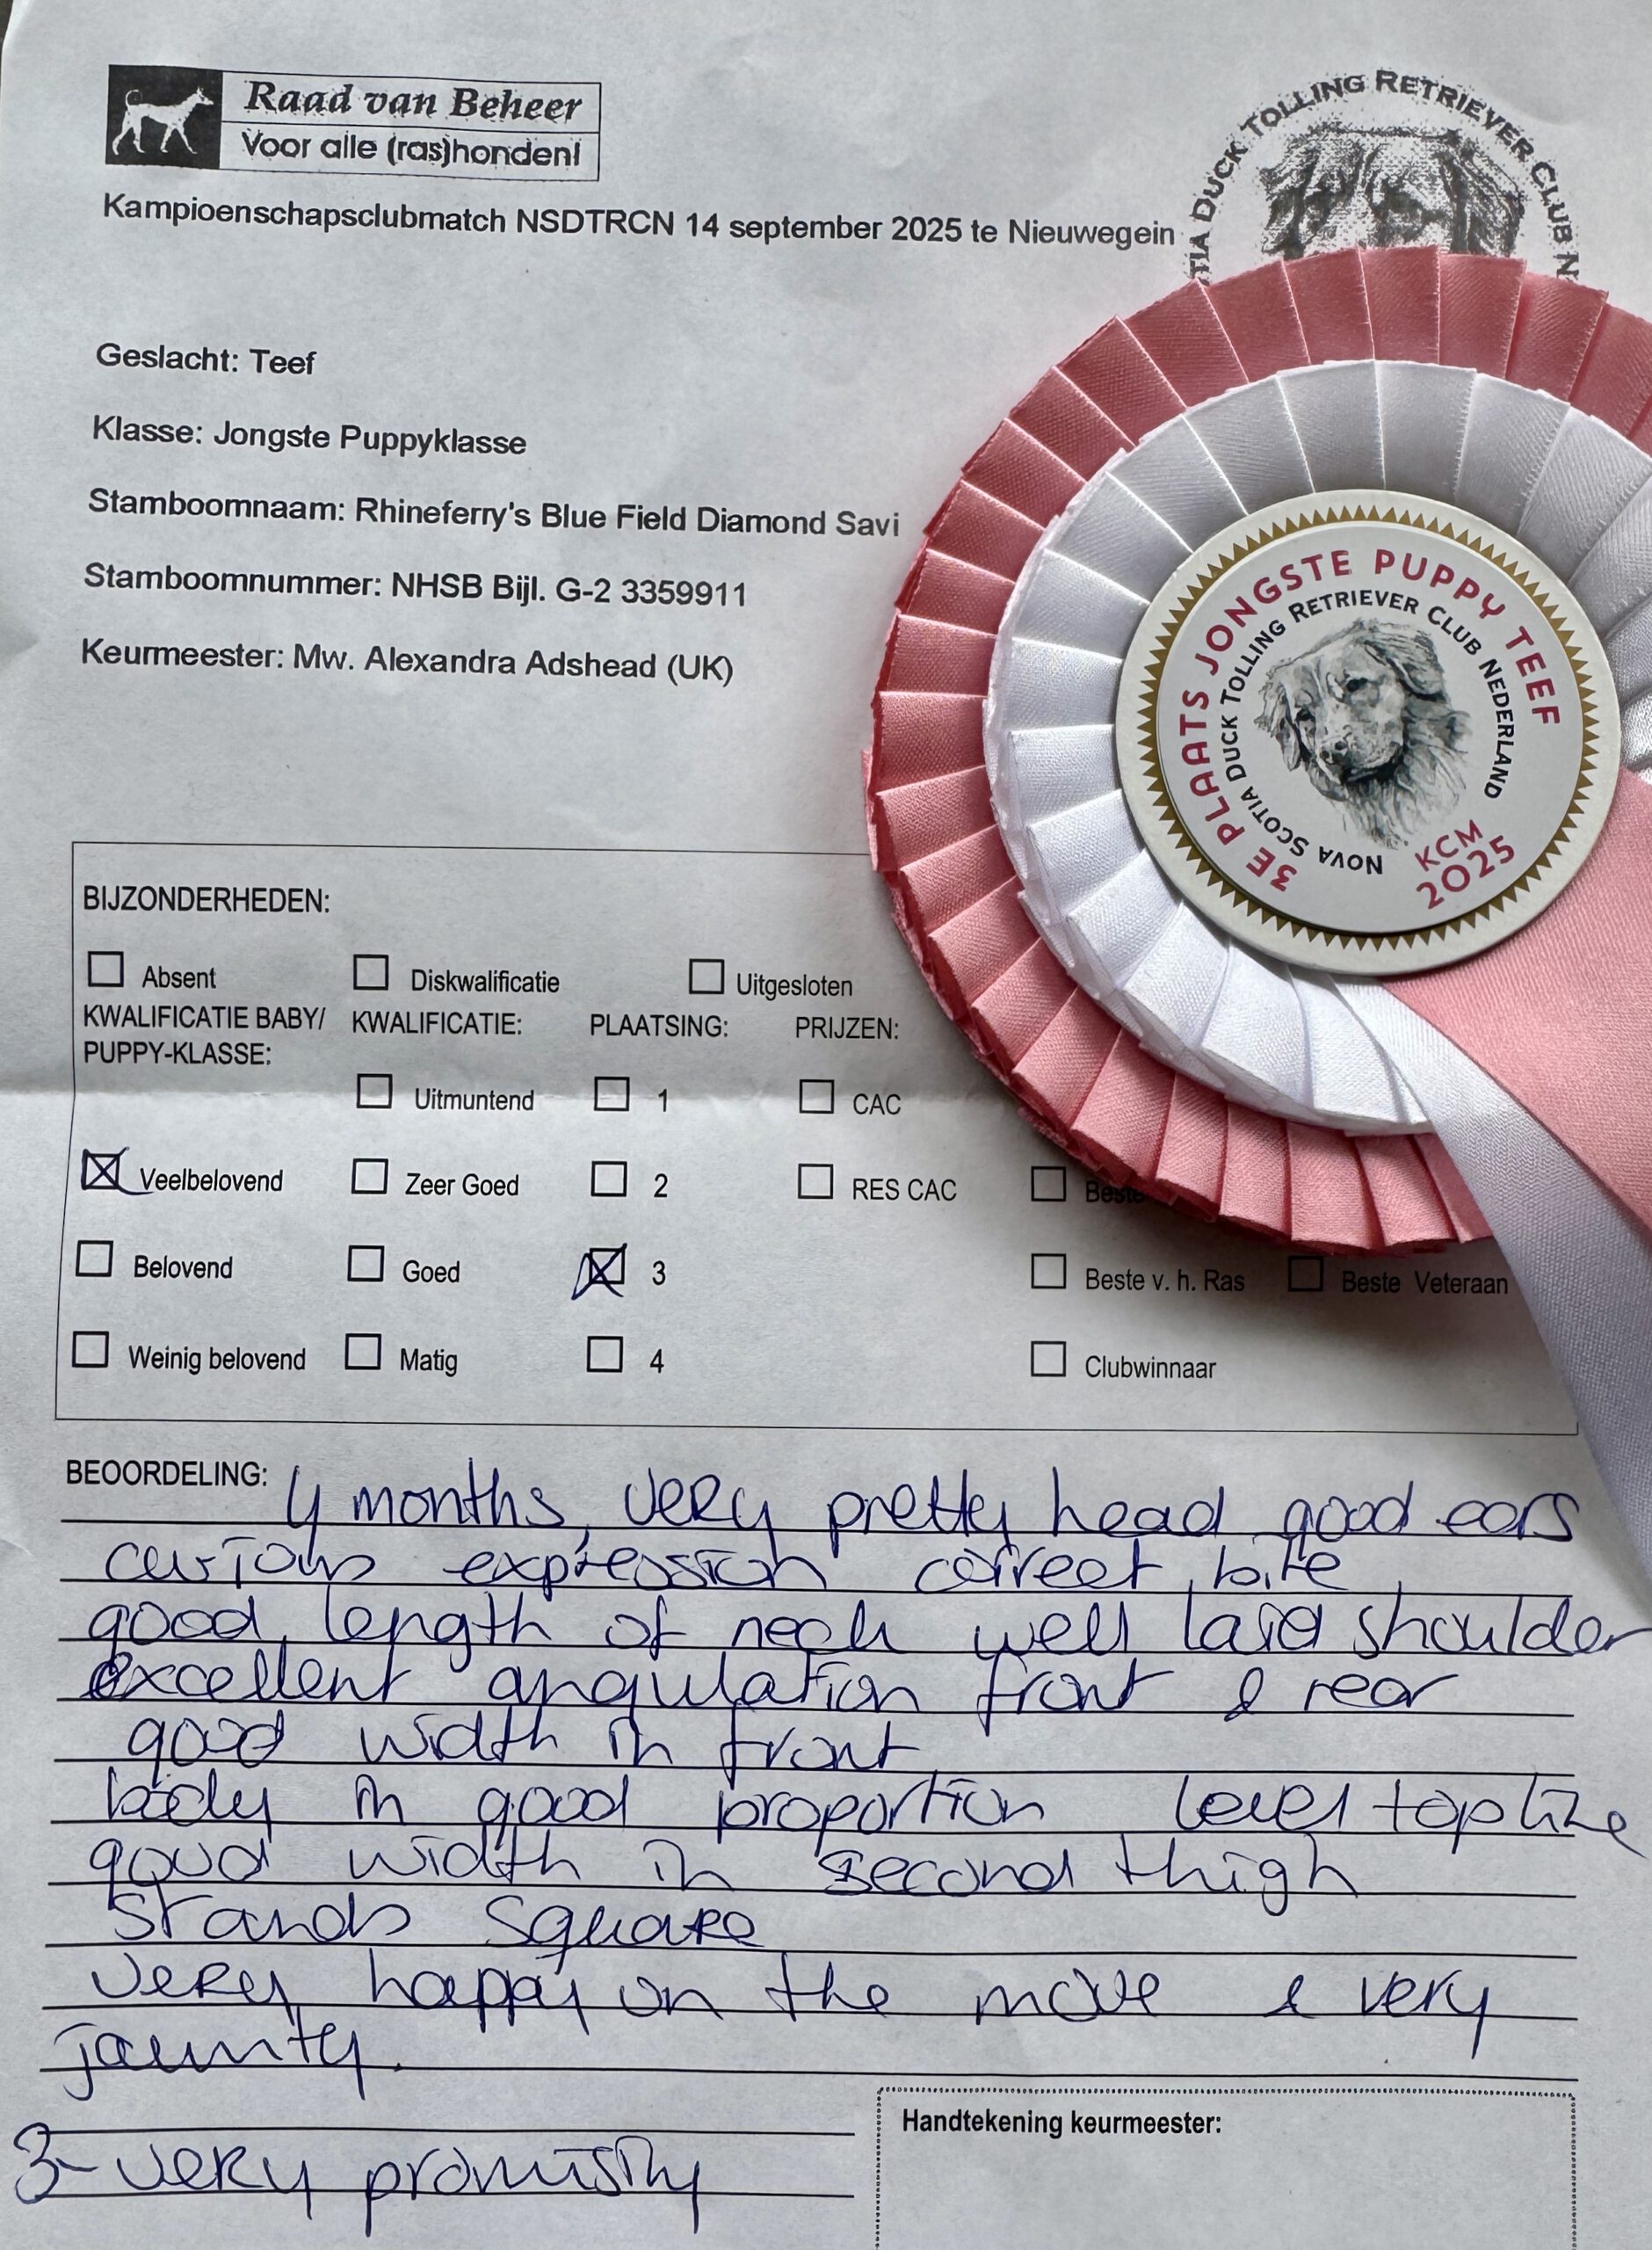 Raad van Beheer
Voor alle (ras)honden!
Kampioenschapsclubmatch NSDTRCN 14 september 2025 te Nieuwegein
TIA DUCK TOLLING RETRIEVER CLUB N
Geslacht: Teef
Klasse: Jongste Puppyklasse
Stamboomnaam: Rhineferry's Blue Field Diamond Savi
Stamboomnummer: NHSB Bijl. G-2 3359911
Keurmeester: Mw. Alexandra Adshead (UK)
3E PLAATS JONGSTE PUPPY TEEF
NOVA SCOTIA DUCK TOLLING RETRIEVER CLUB NEDERLAND
KCM
2025
BIJZONDERHEDEN:
Absent Diskwalificatie Uitgesloten
KWALIFICATIE BABY/ KWALIFICATIE: PLAATSING: PRIJZEN:
PUPPY-KLASSE:
Uitmuntend 1 CAC
Veelbelovend Zeer Goed 2 RES CAC Beste
Belovend Goed 3 Beste v. h. Ras Beste Veteraan
Weinig belovend Matig 4 Clubwinnaar
BEOORDELING: 4 months, very pretty head good ears
curious expression correct bite
good length of neck well laid shoulder
excellent angulation front & rear
good width in front
body in good proportion level topline
good width in second thigh
stands square
very happy on the move & very
jaunty.
Handtekening keurmeester:
3- very promising